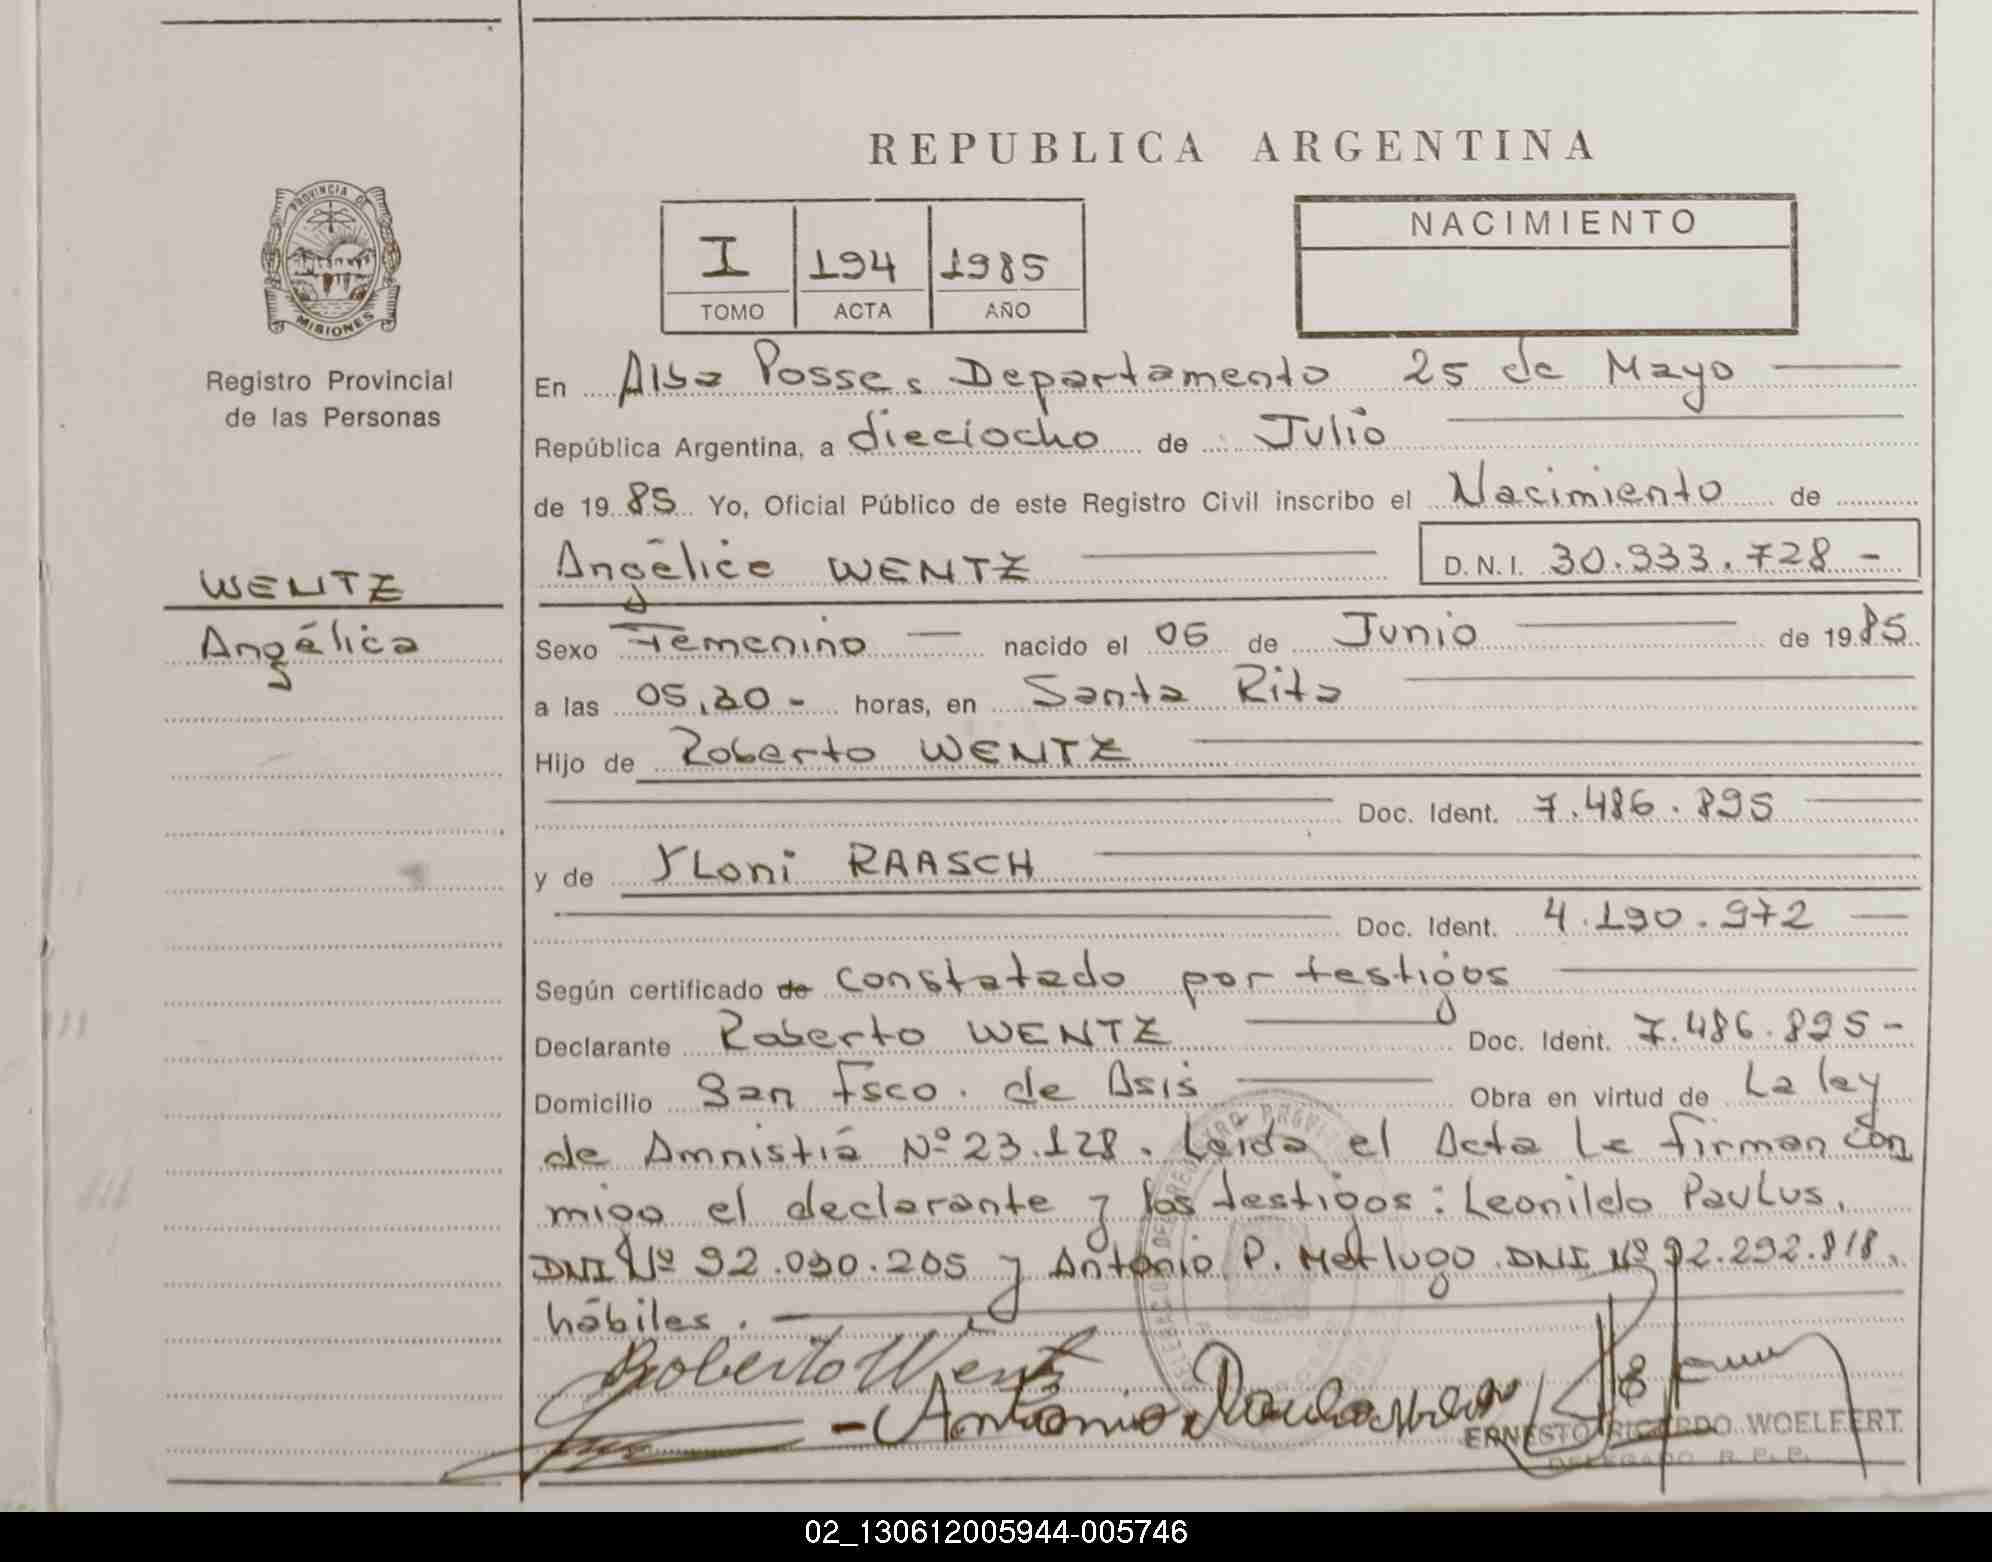 REPUBLICA ARGENTINA
PROVINCIA DE
MISIONES
Registro Provincial
de las Personas
I 194 1985
TOMO ACTA AÑO
NACIMIENTO
En Alba Posse, Departamento 25 de Mayo
República Argentina, a dieciocho de Julio
de 1985 Yo, Oficial Público de este Registro Civil inscribo el Nacimiento de
WENTZ
Angélica
Angélica WENTZ D.N.I. 30.933.728 -
Sexo Femenino nacido el 06 de Junio de 1985
a las 05,30 - horas, en Santa Rita
Hijo de Roberto WENTZ
Doc. Ident. 7.486.895
y de Loni RAASCH
Doc. Ident. 4.190.972
Según certificado de constatado por testigos
Declarante Roberto WENTZ Doc. Ident. 7.486.895 -
Domicilio San Fsco. de Asis Obra en virtud de La ley
de Amnistiá Nº 23.128. Leida el Acta le firman con
migo el declarante y los testigos: Leonildo Paulus,
DNI Nº 92.090.205 y Antonio P. DNI Nº 92.292.818.
hábiles.
Roberto Wentz
Antonio
ERNESTO RICARDO WOELFERT
DELEGADO R. P. P.
02_130612005944-005746